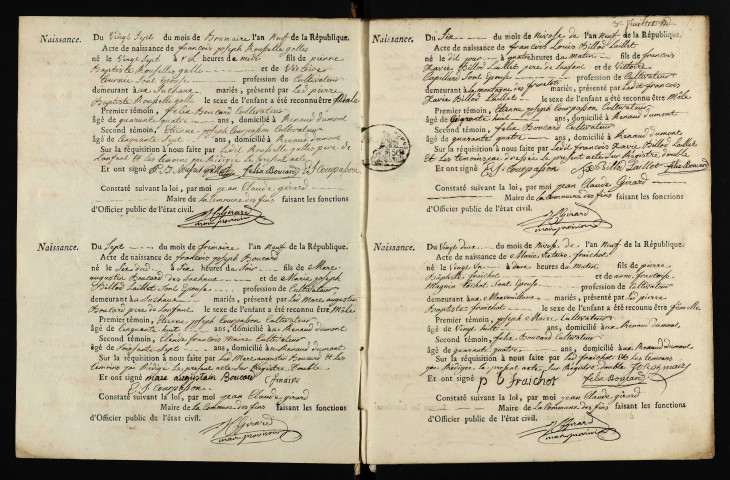 Naissance. Du Vingt Sept du mois de Brumaire l'an Neuf de la République.
Acte de naissance de françois joseph Roupelle galle
né le Vingt Sept à heures de midi fils de pierre
Baptiste Roupelle galle et de Victoire
Sont Epouse profession de Cultivateur
demeurant aux Suchaux mariés, présenté par Led pierre
Baptiste Roupelle galle le sexe de l'enfant a été reconnu être Mâle
Premier témoin, felix Boucard Cultivateur
âgé de quarante quatre ans, domicilié à Renaud dumont
Second témoin, Etienne joseph Courpasson Cultivateur
âgé de Cinquante Sept ans, domicilié à Renaud dumont
Sur la réquisition à nous faite par Led Roupelle galle pere de
L'enfant et les temoins jai Rédigé le présent acte
Et ont signé felix Boucard E J Courpasson
Constaté suivant la loi, par moi jean Claude girard
Maire de la Commune des fins faisant les fonctions
d'Officier public de l'état civil.
J C Girard
maire provisoire
Naissance. Du Sept du mois de frimaire l'an Neuf de la République.
Acte de naissance de françois joseph Boucard
né le Six dud à Six heures du Soir fils de Marc
augustin Boucard des Suchaux et de Marie joseph
Billod Laillet Sont Epouse profession de Cultivateur
demeurant au Suchaux mariés, présenté par Led Marc augustin
Boucard pere de l'enfant le sexe de l'enfant a été reconnu être Mâle
Premier témoin, Etienne joseph Courpasson Cultivateur
âgé de Cinquante huit ans, domicilié au Renaud dumont
Second témoin, Claude francois Maire Cultivateur
âgé de Soixante Sept ans, domicilié au Renaud dumont
Sur la réquisition à nous faite par Led Marc augustin Boucard et les
temoins jai Rédigé le présent acte Sur Registre double
Et ont signé marc augustain Boucard C f maire
E J Courpasson
Constaté suivant la loi, par moi jean Claude girard
Maire de la Commune des fins faisant les fonctions
d'Officier public de l'état civil.
J C Girard
maire provisoire
Naissance. Du Six du mois de Nivose de l'an Neuf de la République.
Acte de naissance de françois Louis Billod Laillet
né le dit jour à quatre heures du Matin fils de francois
Xavie Billod Laillet pere de l'enfant et de Victoire
Cupillard Sont Epouse profession de Cultivateur
demeurant à la montagne des frenelots mariés, présenté par Ledit francois
Xavie Billod Laillet le sexe de l'enfant a été reconnu être Mâle
Premier témoin, Etienne joseph Courpasson Cultivateur
âgé de Cinquante huit ans, domicilié à Renaud dumont
Second témoin, felix Boucard Cultivateur
âgé de quarante quatre ans, domicilié à Renaud dumont
Sur la réquisition à nous faite par Ledit francois Xavie Billod Laillet
Et les temoins jai le présent acte Sur Registre double
Et ont signé E J Courpasson Billod Laillet felix Boucard
Constaté suivant la loi, par moi jean Claude Girard
Maire de la Commune des fins faisant les fonctions
d'Officier public de l'état civil.
J C Girard
maire provisoire
Naissance. Du Vingt deux du mois de Nivose de l'an Neuf de la République.
Acte de naissance de Marie Victoire fraichot
né le Vingt Un à deux heures du Matin fils de pierre
Baptiste fraichot et de anne francoise
Sont Epouse profession de Cultivateur
demeurant aux mariés, présenté par Led pierre
Baptiste fraichot le sexe de l'enfant a été reconnu être femelle
Premier témoin, joseph Maire Cultivateur
âgé de Vingt huit ans, domicilié aux Renaud dumont
Second témoin, felix Boucard Cultivateur
âgé de quarante quatre ans, domicilié aux Renaud dumont
Sur la réquisition à nous faite par Led fraichot et les temoins
jai Rédigé le présent acte Sur Registre double
Et ont signé p b fraichot felix Boucard
Constaté suivant la loi, par moi jean Claude girard
Maire de la Commune des fins faisant les fonctions
d'Officier public de l'état civil.
J C Girard
maire provisoire